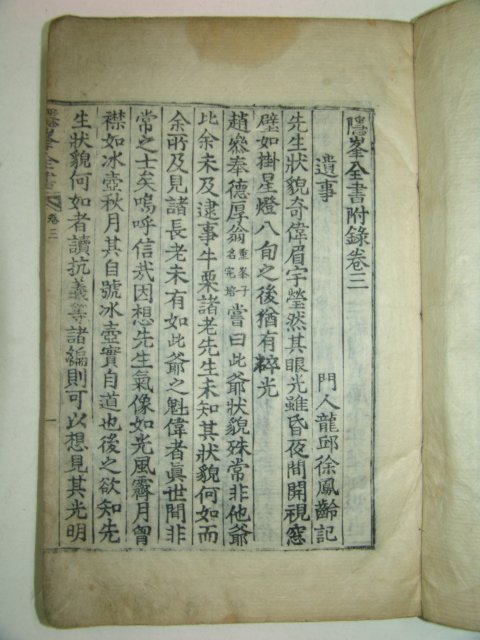 隱峯全書附錄卷三
遺事
門人龍邱徐鳳齡記
先生狀貌奇偉眉宇瑩然其眼光雖昏夜間開視窓
壁如掛星燈八旬之後猶有粹光
趙參奉德厚翁重峯子名完培嘗曰此爺狀貌殊常非他爺
比余未及逮事牛栗諸老先生未知其狀貌何如而
余所及見諸長老未有如此爺之魁偉者眞世間非
常之士矣嗚呼信哉因想先生氣像如光風霽月胷
襟如冰壺秋月其自號冰壺實自道也後之欲知先
生狀貌何如者讀抗義等諸編則可以想見其光明
隱峯全書 卷三 一